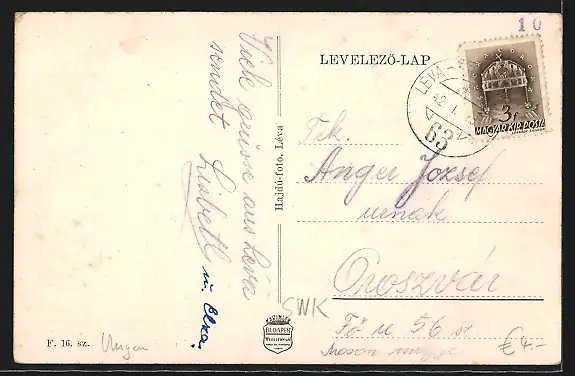 10
LEVELEZŐ-LAP
LÉVA
42. I.
63
3f
MAGYAR KIR. POSTA
Viele grüsse aus Léva
sendet Lisbeth
u. Elza.
Hajdú-foto, Léva
Tek.
Anger József
urnak
Oroszvár
Fő u 56 sz
Moson megye
SWK
€ 4.-
BUDAPEST
F. 16. sz.
Ungarn